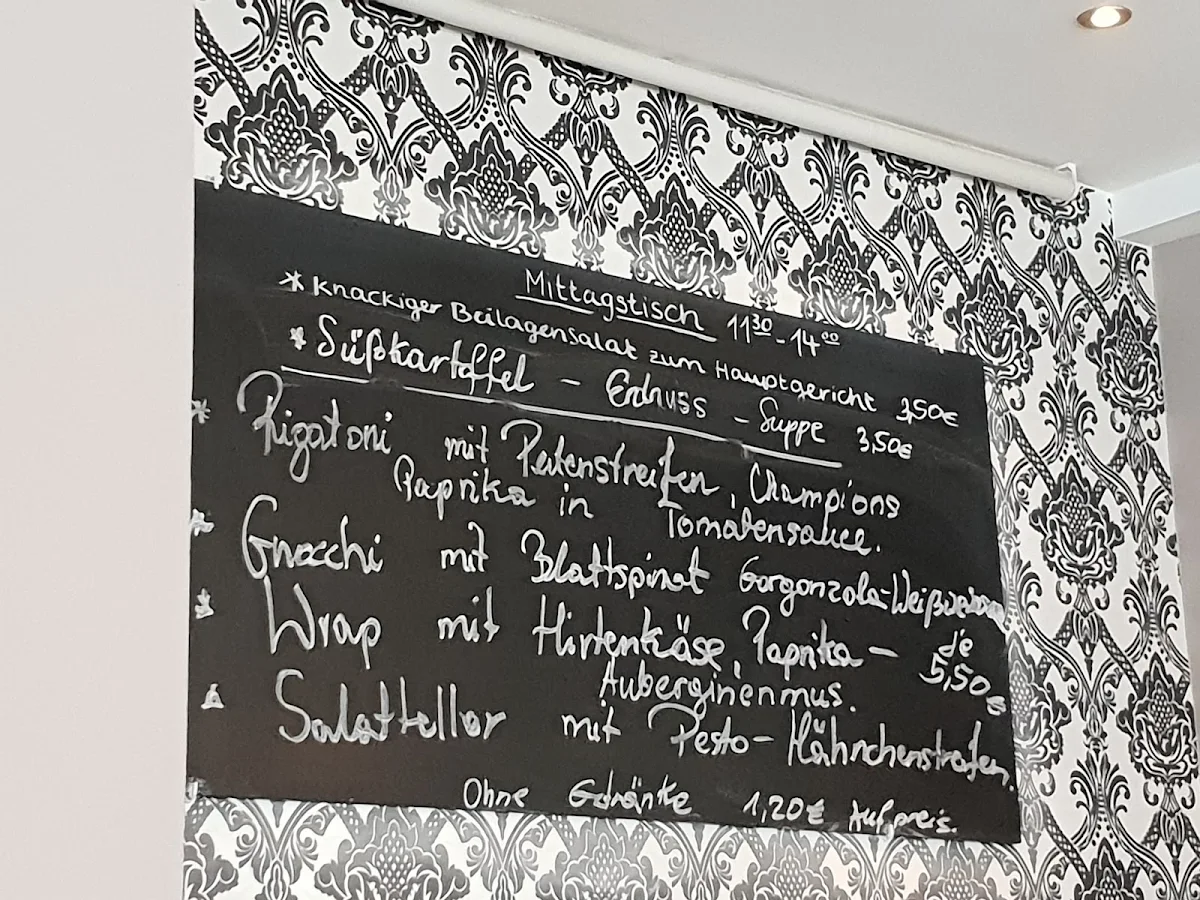 Mittagstisch 11³⁰-14⁰⁰
* Knackiger Beilagensalat zum Hauptgericht 3,50€
* Süßkartoffel - Erdnuss - Suppe 3,50€
* Rigatoni mit Putenstreifen, Champions
Paprika in Tomatensauce.
* Gnocchi mit Blattspinat Gorgonzola-
* Wrap mit Hirtenkäse, Paprika- je
Auberginenmus. 5,50€
* Salatteller mit Pesto-Hähnchenstreifen
Ohne Getränke 1,20€ Aufpreis.